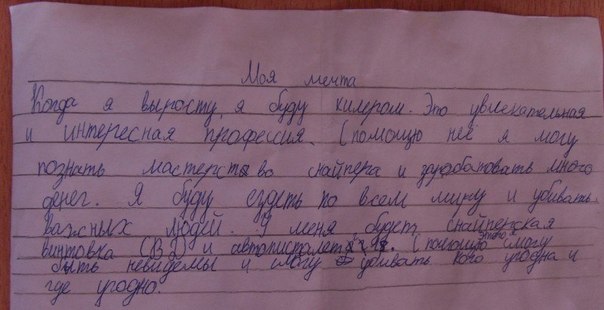 Моя мечта
Когда я выросту, я буду килером. Это увлекательная
и интересная профессия. С помощю неё я могу
познать мастерство снайпера и зарабатовать много
денег. Я буду ездеть по всем миру и убивать
важных людей. У меня будет снайперская
винтовка и автопистолет С помощю этого смогу
быть невидемы и смогу убивать кого угодна и
где угодно.